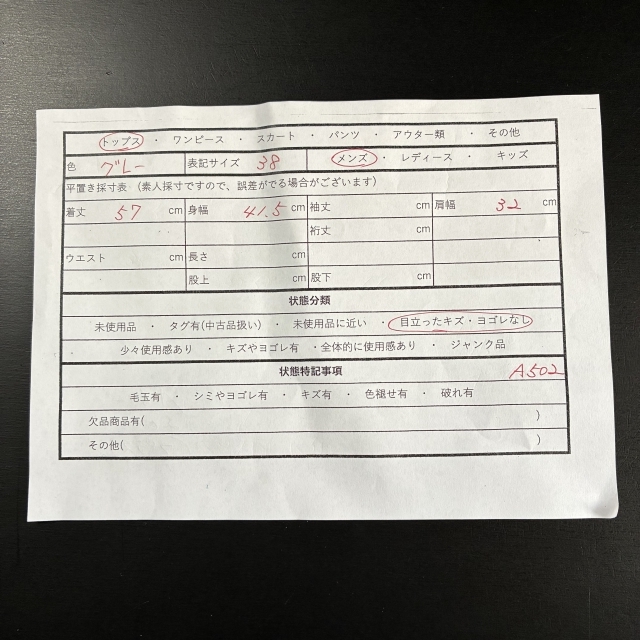 トップス ・ ワンピース ・ スカート ・ パンツ ・ アウター類 ・ その他
色 グレー 表記サイズ 38 メンズ ・ レディース ・ キッズ
平置き採寸表 (素人採寸ですので、誤差がでる場合がございます)
着丈 57 cm 身幅 41.5 cm 袖丈 cm 肩幅 32 cm
裄丈 cm
ウエスト cm 長さ cm
股上 cm 股下 cm
状態分類
未使用品 ・ タグ有(中古品扱い) ・ 未使用品に近い ・ 目立ったキズ・ヨゴレなし
少々使用感あり ・ キズやヨゴレ有 ・全体的に使用感あり ・ ジャンク品
状態特記事項 A502
毛玉有 ・ シミやヨゴレ有 ・ キズ有 ・ 色褪せ有 ・ 破れ有
欠品商品有( )
その他( )